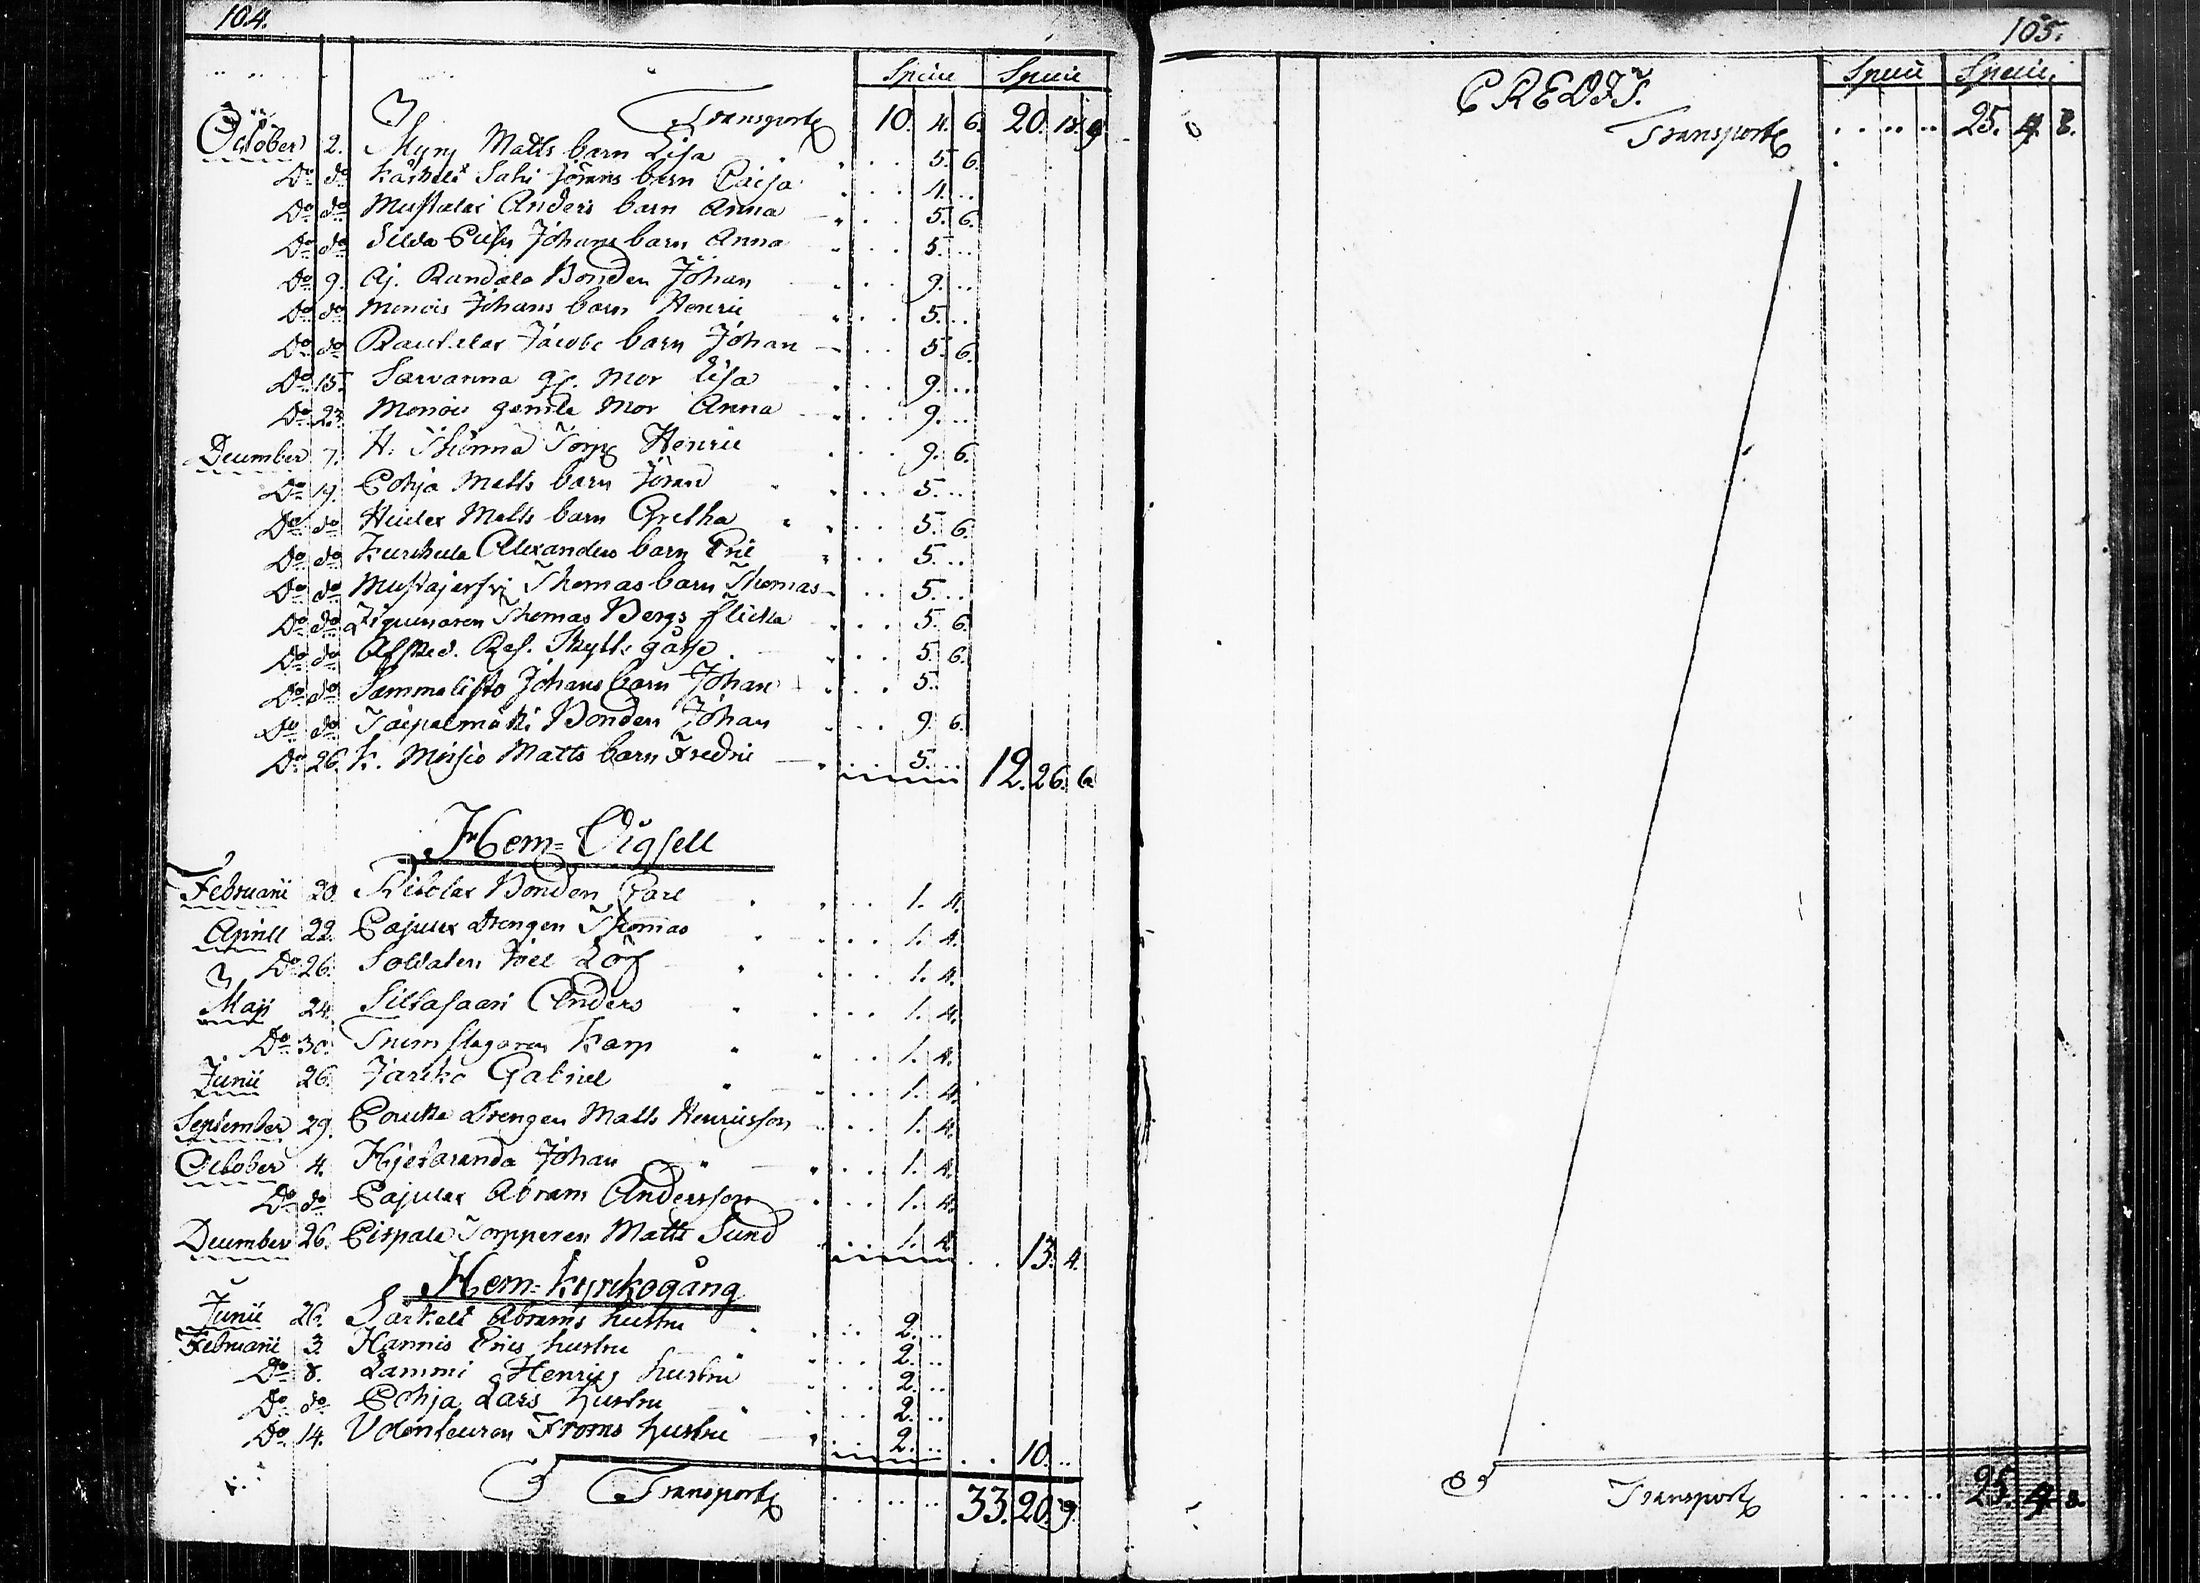 104.
Specie Specie
Transport 10. 4. 6. 20. 18. 9
October 2. Myry Matts barn Lisa 5. 6.
Do do Jörans barn Caisa 4.
Do do Mustalax Anders barn Anna 5. 6.
Do do Johans barn Anna 5.
Do 9. Aj. Randala Bonden Johan 9.
Do do Monois Johans barn Henric 5.
Do do Jacobs barn Johan 5. 6.
Do 15. Sarvanna gl. Mor Lisa 9.
Do 23. Monois gamla Mor Anna 9.
December 7. H. Torp Henric 9. 6.
Do 19. Pohja Matts barn Jöran 5.
Do do Matts barn Gretha 5. 6.
Do do Kurkula Alexanders barn Eric 5.
Do do Mustajerfvi Thomas barn Thomas 5.
Do do Thomas Bergs flicka 5. 6.
Do do Afsked. Res. gåsse 5. 6.
Do do Sammalisto Johans barn Johan 5.
Do do Taipalmäki Bonden Johan 9. 6.
Do 26. K. Moisio Matts barn Fredric 5. 12. 26. 6
Hem=Vigsell
Februarii 20. Bonden Carl 1. 4.
Aprill 22. Pajulax Drengen Thomas 1. 4.
Do 26. Soldaten Joel Löf 1. 4.
Maji 24. Siltasaari Anders 1. 4.
Do 30. Trumslagaren Karp 1. 4.
Junii 26. Jariko Gabriel 1. 4.
September 29. Drengen Matts Henricsson 1. 4.
October 4. Hjetaranda Johan 1. 4.
Do do Pajulax Abram Andersson 1. 4.
December 26. Torpperen Matts Sund 1. 4. 13. 4.
Hem=kyrkogång
Junii 26. Särkelä Abrams hustru 2.
Februarii 3. Hannis Erics hustru 2.
Do 8. Lammi Henrics hustru 2.
Do do Pohja Lars hustru 2.
Do 14. Volonteuren Froms hustru 2. 10.
Transport 33. 20. 9.
105.
CREDIT. Specie Specie
Transport 25. 4. 8.
Transport 25. 4. 8.